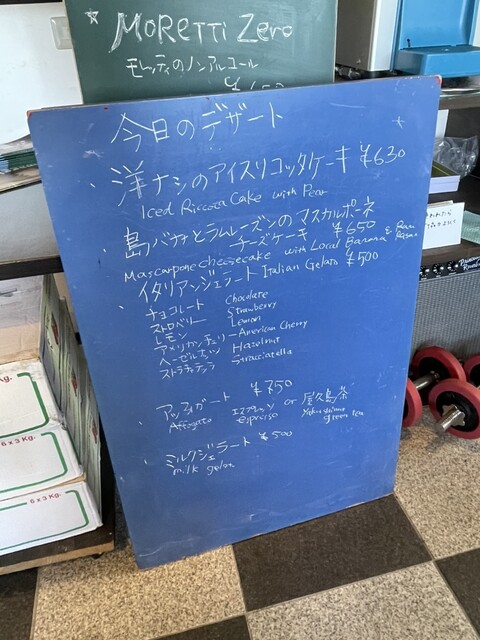 ★ MORETTI Zero
モレッティのノンアルコール
今日のデザート
・洋ナシのアイスリコッタケーキ ¥630
Iced Riccota Cake with Pear
・島バナナとラムレーズンのマスカルポーネ
チーズケーキ ¥650
Mascarpone cheesecake with Local Banana &
・イタリアンジェラート Italian Gelato ¥500
チョコレート Chocolate
ストロベリー Strawberry
レモン Lemon
アメリカンチェリー American Cherry
ヘーゼルナッツ Hazelnut
ストラチアテラ Stracciatella
・アッフォガート ¥750
エスプレッソ or 屋久島茶
Affogato espresso Yakushima
green tea
・ミルクジェラート ¥500
milk gelato
6x3 Kg.
6x3 Kg.